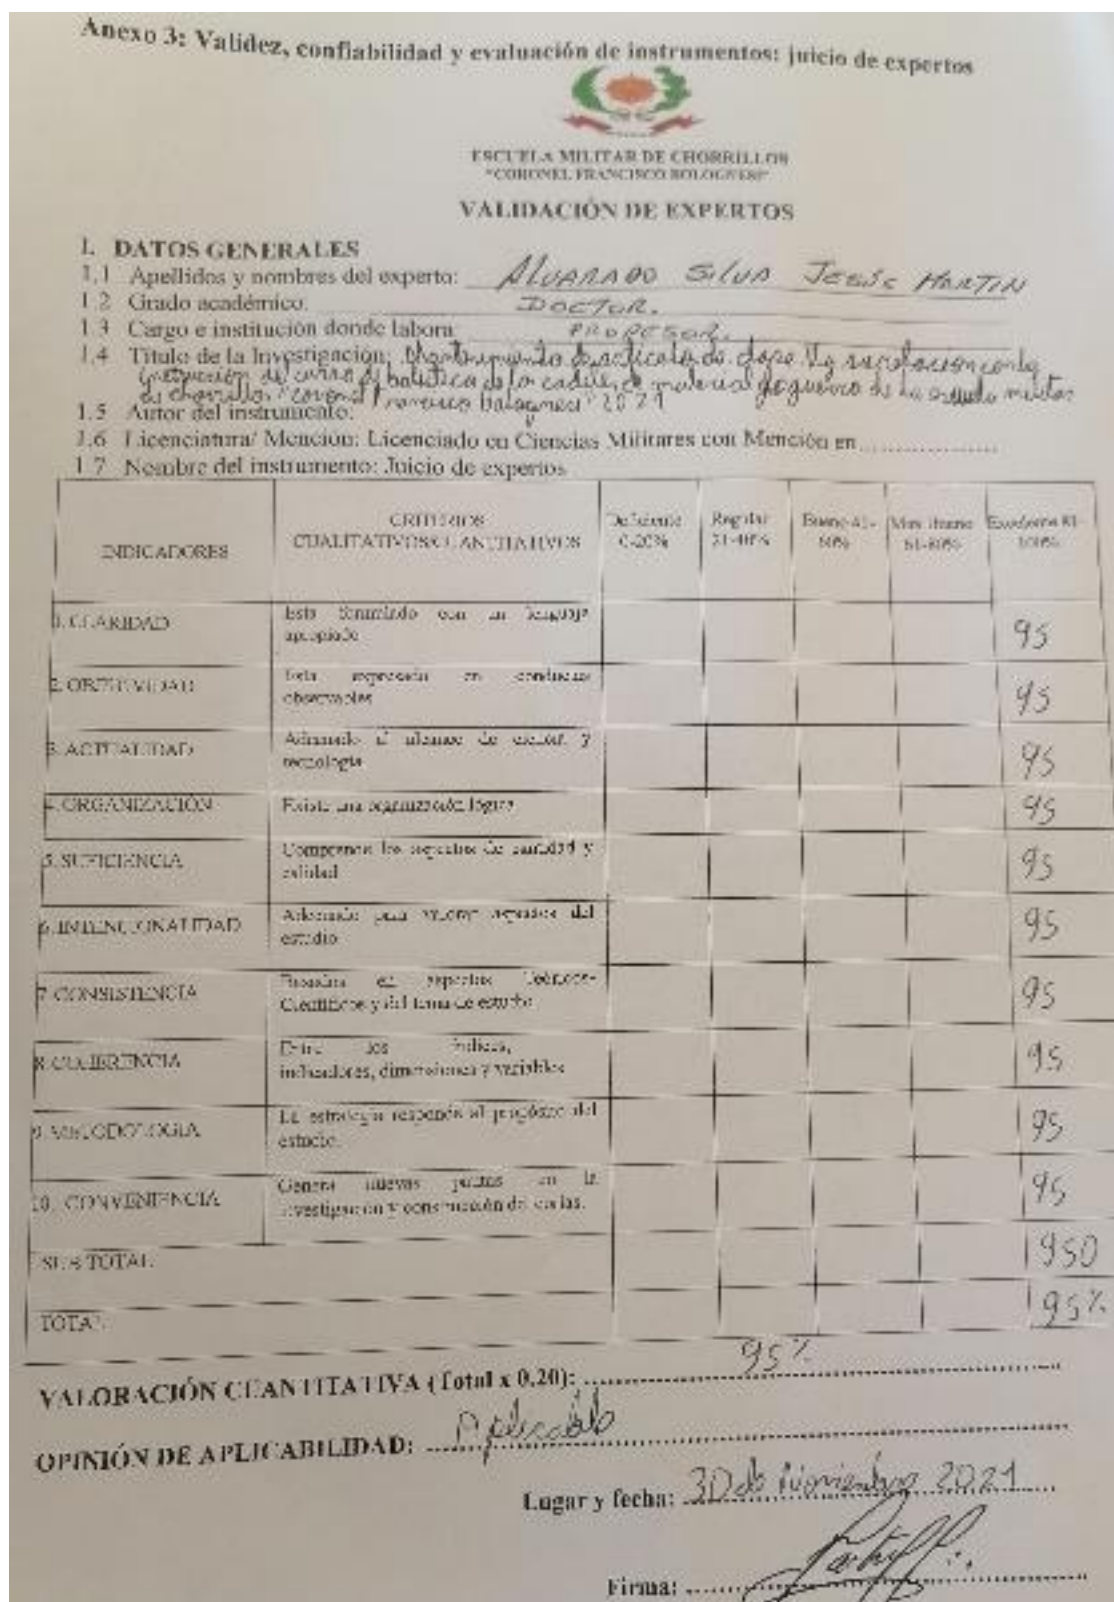 Anexo 3: Validez, confiabilidad y evaluación de instrumentos: juicio de expertos
ESCUELA MILITAR DE CHORRILLOS
"CORONEL FRANCISCO BOLOGNESI"
VALIDACIÓN DE EXPERTOS
I. DATOS GENERALES
1.1 Apellidos y nombres del experto: ALVARADO SILVA JESÚS MARTIN
1.2 Grado académico. DOCTOR.
1.3 Cargo e institución donde labora PROFESOR.
1.4 Título de la Investigación: Mantenimiento de artículos de clase V y su relación con la
instrucción del curso de balística de los cadetes de material de guerra de la escuela militar
de chorrillos "coronel Francisco bolognesi" 2021
1.5 Autor del instrumento:
1.6 Licenciatura/ Mención: Licenciado en Ciencias Militares con Mención en ....................
1.7 Nombre del instrumento: Juicio de expertos
INDICADORES
CRITERIOS
CUALITATIVOS/CUANTITATIVOS
Deficiente
0-20%
Regular
21-40%
Bueno 41-
60%
Muy Bueno
61-80%
Excelente 81-
100%
1. CLARIDAD
Esta formulado con un lenguaje
apropiado
95
2. OBJETIVIDAD
Esta expresado en conductas
observables
95
3. ACTUALIDAD
Adecuado al alcance de ciencia y
tecnología
95
4. ORGANIZACIÓN
Existe una organización lógica
95
5. SUFICIENCIA
Comprende los aspectos de cantidad y
calidad
95
6. INTENCIONALIDAD
Adecuado para valorar aspectos del
estudio
95
7. CONSISTENCIA
Basados en aspectos Teóricos-
Científicos y del tema de estudio
95
8. COHERENCIA
Entre los índices,
indicadores, dimensiones y variables
95
9. METODOLOGIA
La estrategia responde al propósito del
estudio.
95
10. CONVENIENCIA
Genera nuevas pautas en la
investigación y construcción de teorías.
95
SUB TOTAL
950
TOTAL
95%
VALORACIÓN CUANTITATIVA (Total x 0.20): 95%
OPINIÓN DE APLICABILIDAD: Aplicable
Lugar y fecha: 30 de Noviembre 2021
Firma: